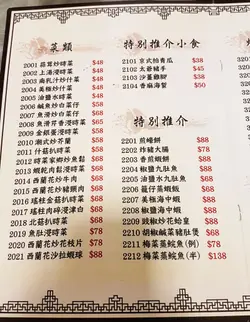 菜類
2001 蒜茸炒時菜 $48
2002 上湯浸時菜 $58
2003 南乳炒什菜 $48
2004 美極炒什菜 $48
2005 油鹽水時菜 $48
2006 鹹魚炒白菜仔 $58
2007 魚滑炒白菜仔 $68
2008 魚滑芹香浸時菜 $68
2009 金銀蛋浸時菜
2010 潮式炒芥蘭
2011 什菇扒時菜 $58
2012 時菜家鄉炒魚鬆 $68
2013 蝦乾肉鬆浸時菜 $68
2014 西蘭花炒牛肉 $58
2015 西蘭花炒豬頸肉 $58
2016 瑤柱金菇扒時菜 $68
2017 瑤柱肉碎浸津白 $68
2018 北菇扒時菜 $68
2019 魚肚浸時菜 $78
2020 西蘭花炒花枝片 $78
2021 西蘭花沙拉蝦球 $88
特別推介小食
2101 京式拍青瓜 $38
2102 太爺豬手 $45
2103 沙薑雞腳 $38
2104 香麻海蜇 $50
特別推介
2201 煎蠔餅 $88
2202 炒豬大腸 $78
2203 香煎蝦餅 $88
2204 椒鹽九肚魚 $88
2205 油鹽水九肚魚 $88
2206 $88
2207 美極海中蝦 $88
2208 椒鹽海中蝦 $88
2209 豉椒炒花蛤皇 $88
2210 胡椒鹹菜豬肚煲 $68
2211 梅菜蒸鯇魚(例) $78
2212 梅菜蒸鯇魚(半) $138